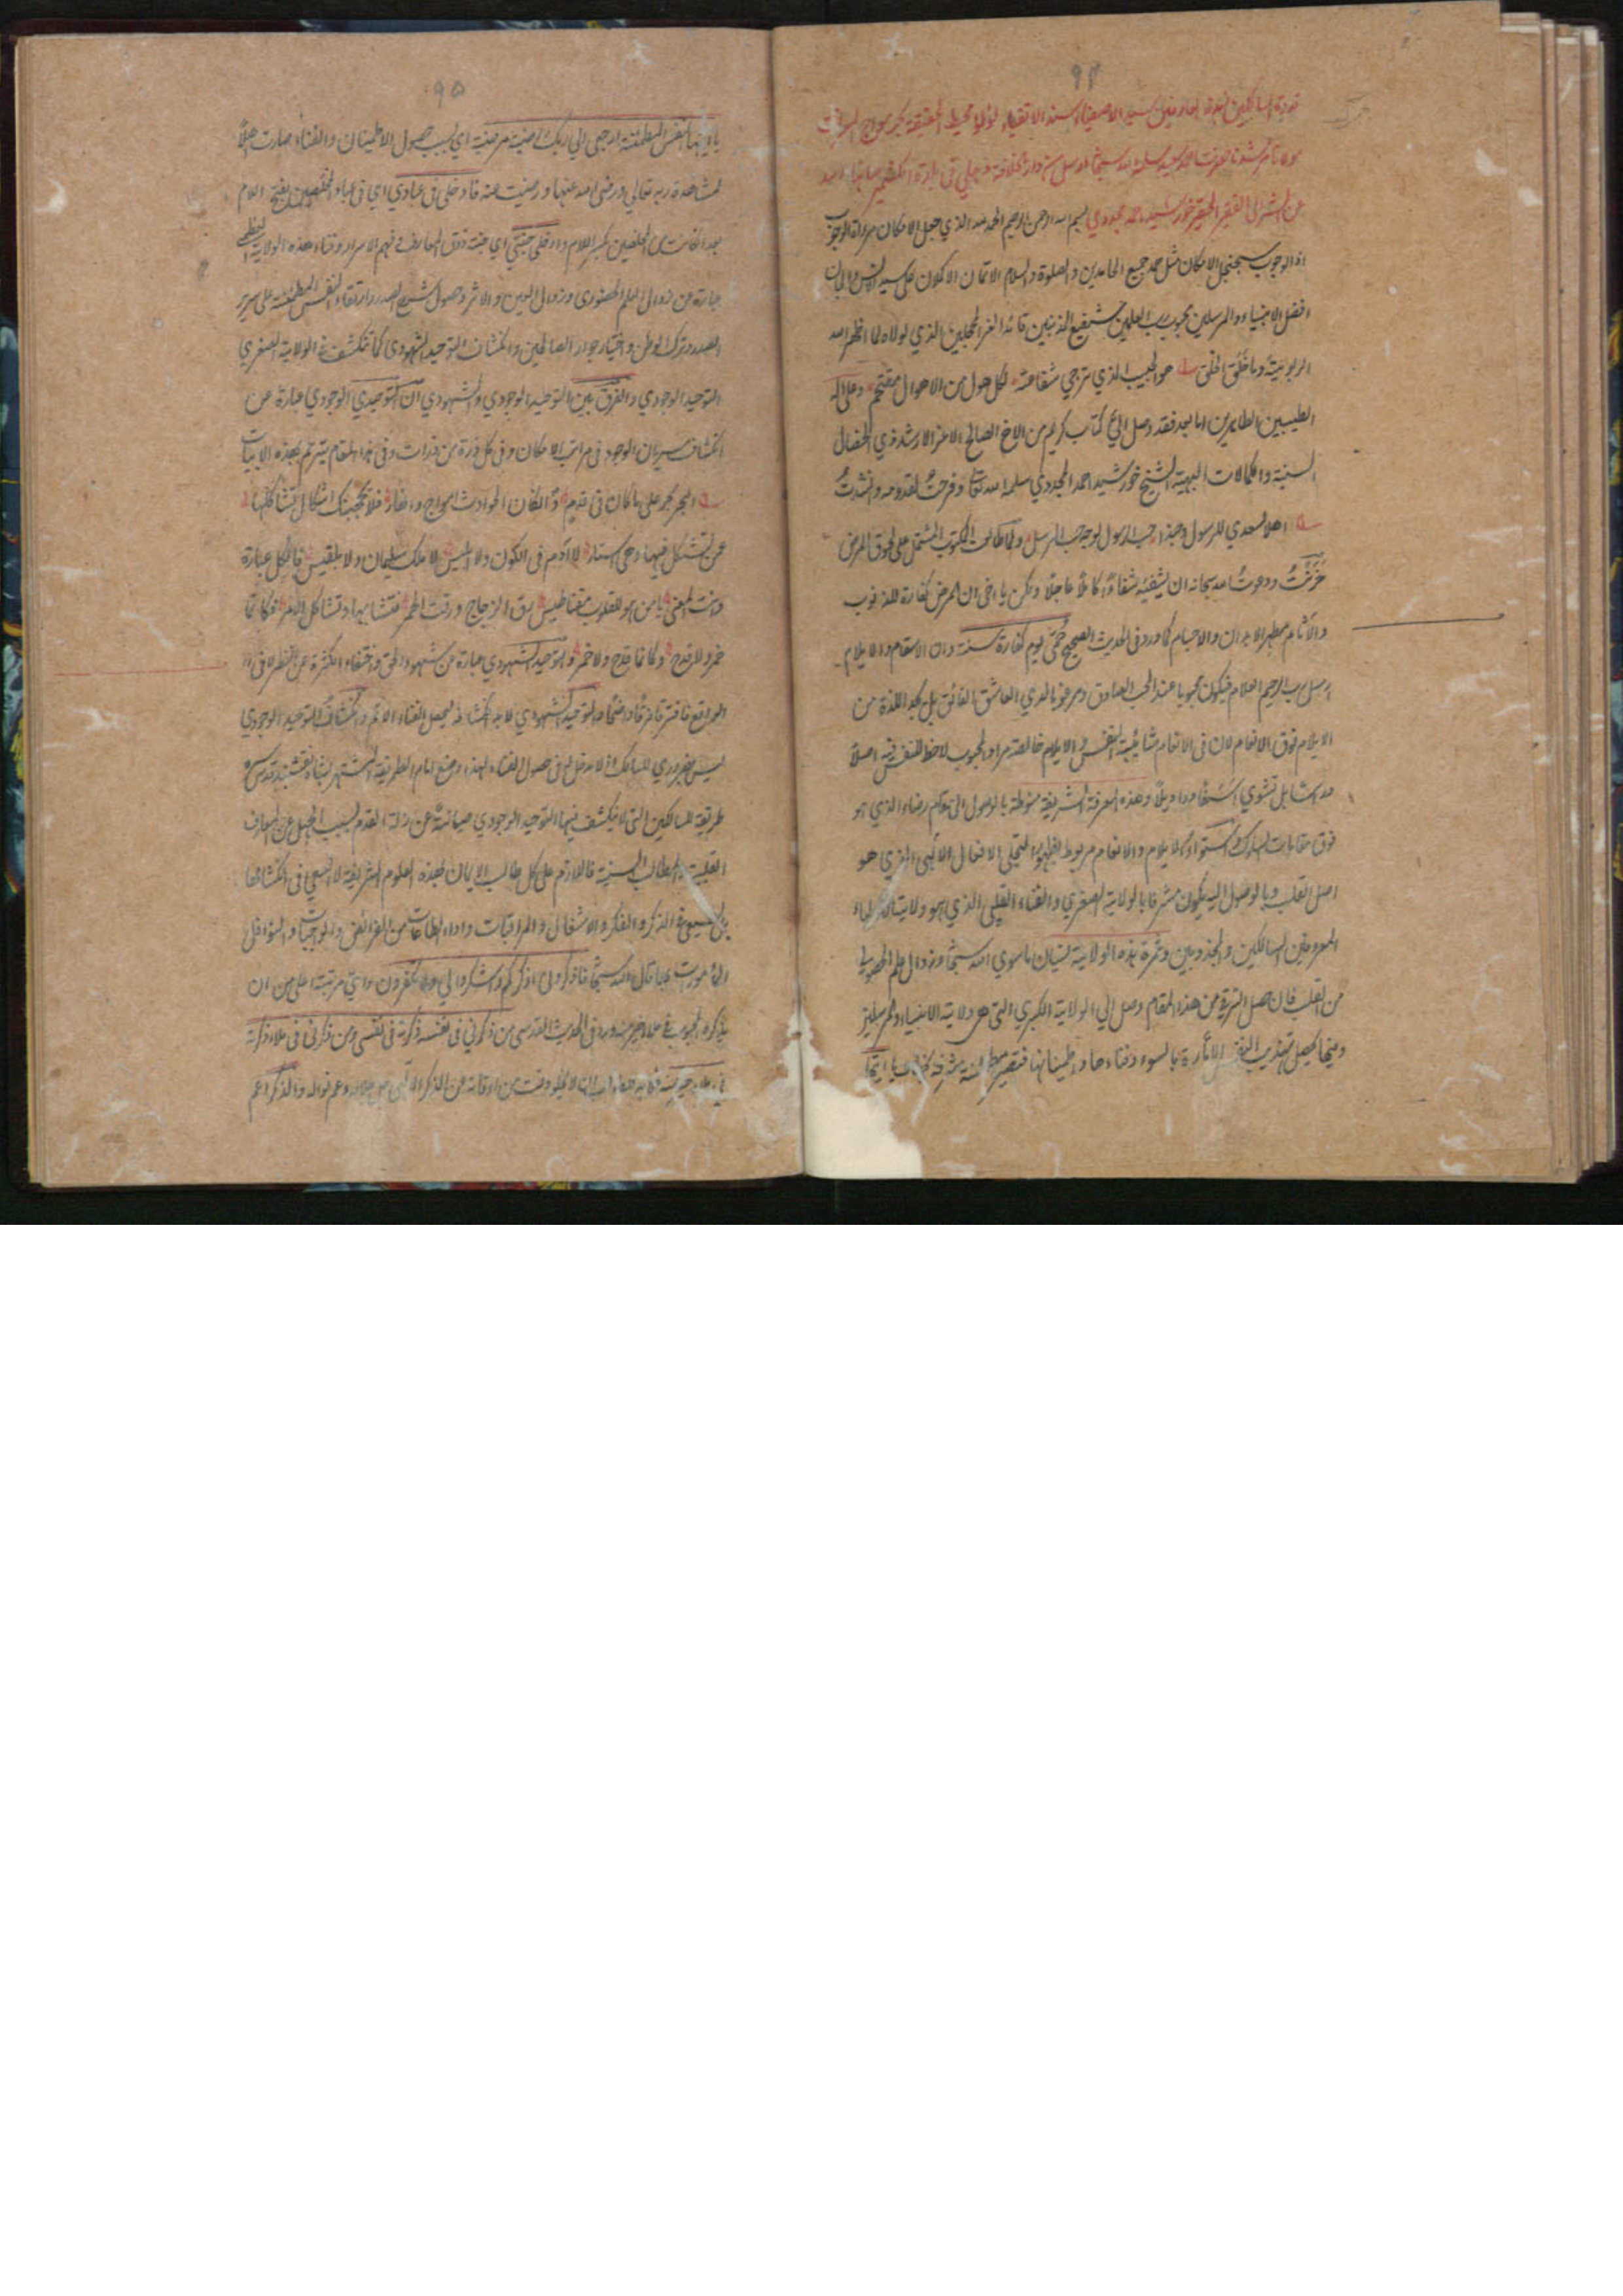 ٩٤
قدوة السالكين زبدة العارفين سيد الاصفياء سند الاتقياء لؤلؤ محيط الحقيقة بحر مواج
مولانا مرشدنا حضرت سلمه الله سبحانه
من الفقير الحقير خورشيد احمد مجددي بسم الله الرحمن الرحيم الحمد لله الذي جعل الامكان مرءاة الوجوب
الوجوب سجنجل الامكان مثل حمد جميع الحامدين والصلوة والسلام الاتمان الاكملان على سيد الانس والجان
افضل الانبياء والمرسلين محبوب رب العلمين شفيع المذنبين قائد الغر المحجلين الذي لولاه لما اظهر الله
الربوبية وما خلق الخلق هو الحبيب الذي ترجى شفاعته لكل هول من الاهوال مقتحم وعلى اله
الطيبين الطاهرين اما بعد فقد وصل الي كتاب كريم من الاخ الصالح الاعز الارشد ذي الخصال
السنية والكمالات البهية الشيخ خورشيد احمد المجددي سلمه الله تعالى وفرحت لقدومه وانشدت
اهلا لسعدي للرسول وحبذا حب الرسول لوجه حب المرسل ولما طالعت المكتوب المشتمل على لحوق المرض
حزنت ودعوت الله سبحانه ان يشفيه شفاءا كاملا عاجلا ولكن يا اخي ان المرض كفارة للذنوب
والآثام مطهر الابدان والاجسام كما ورد في الحديث الصحيح حمى يوم كفارة سنة وان الاسقام والايلام
رب الرحيم العلام فيكون محبوبا عند المحب الصادق ومرغوبا لدي العاشق الفائق بل يجد اللذة من
الايلام فوق الانعام لان في الانعام شائبة النفس والايلام خالصة مراد المحبوب لا حظ للنفس فيه اصلا
وهذه المعرفة الشريفة منوطة بالوصول الى مقام رضاء الذي هو
فوق مقامات السلوك واستواء الايلام والانعام مربوط بظهور التجلي الافعال الالهي الذي هو
اصل القلب وبالوصول اليه يكون مشرفا بالولاية الصغري والفناء القلبي الذي هو ولاية الاولياء
المعروفين السالكين والمجذوبين وثمرة هذه الولاية نسيان ما سوي الله سبحانه وزوال علم الحصولي
من القلب فان حصل الترقي من هذا المقام وصل الي الولاية الكبري التي هي ولاية الانبياء والمرسلين
وفيها يحصل تهذيب النفس الامارة بالسوء وفناءها واطمينانها فتصير مطمئنة مشرفة بخطاب يا ايتها
٩٥
يا ايتها النفس المطمئنة ارجعي الي ربك راضية مرضية اي بسبب حصول الاطمينان والفناء صارت اهلا
لمشاهدة ربه تعالي ورضي الله عنها ورضيت عنه فادخلي في عبادي اي في عباد المخلصين بفتح اللام
بعد ان كانت من المخلصين بكسر اللام وادخلي جنتي اي جنة ذوق المعارف وفهم الاسرار وفناء هذه الولاية العظمى
عبارة عن زوال العلم الحضوري وزوال العين والاثر وحصول شرح الصدر وارتقاء النفس المطمئنة على سرير
الصدر وترك الوطن واختيار جوار الصالحين وانكشاف التوحيد الشهودي كما تنكشف في الولاية الصغري
التوحيد الوجودي والفرق بين التوحيد الوجودي والشهودي ان التوحيدي الوجودي عبارة عن
انكشاف سريان الوجود في مراتب الامكان وفي كل ذرة من ذرات وفي هذا المقام يترنم بهذه الابيات
البحر بحر على ما كان في قدم ان الحوادث امواج وانهار فلا يحجبنك اشكال تشاكلها
عن تشكل فيها وهي استار لا آدم في الكون ولا ابليس لا ملك سليمان ولا بلقيس فالكل عبارة
وانت المعنى يا من هو للقلوب مغناطيس رق الزجاج ورقت الخمر فتشابها وتشاكل الامر فكانما
خمر ولا قدح وكانما قدح ولا خمر والتوحيد الشهودي عبارة عن شهود الحق واختفاء الكثرة عن النظر لا في
الواقع فافترقا فرقا واضحا والتوحيد الشهودي لا بد انكشافه ليحصل الفناء الاتم وانكشاف التوحيد الوجودي
ليس بضروري للسالك اذ لا دخل له في حصول الفناء لهذا وضع امام الطريقة المشتهر بشاه نقشبند قدس سره
طريقة للسالكين التي لا ينكشف فيها التوحيد الوجودي صيانة عن زلة القدم بسبب الجهل عن المعارف
القلبية والمطالب السنية فاللازم على كل طالب الايمان لهذه العلوم الشريفة لا السعي في انكشافها
بل السعي في الذكر والفكر والاشغال والمراقبات واداء الطاعات من الفرائض والواجبات والنوافل
قال الله سبحانه فاذكروني اذكركم واشكروا لي ولا تكفرون واي مرتبة اعلى من ان
يذكره المحبوب في ملاء خير منه ورد في الحديث القدسي من ذكرني في نفسه ذكرته في نفسي ومن ذكرني في ملاء ذكرته
في ملاء خير منه لا يخلو وقت من اوقاته عن الذكر الالهي وعم نواله والذكر اعم